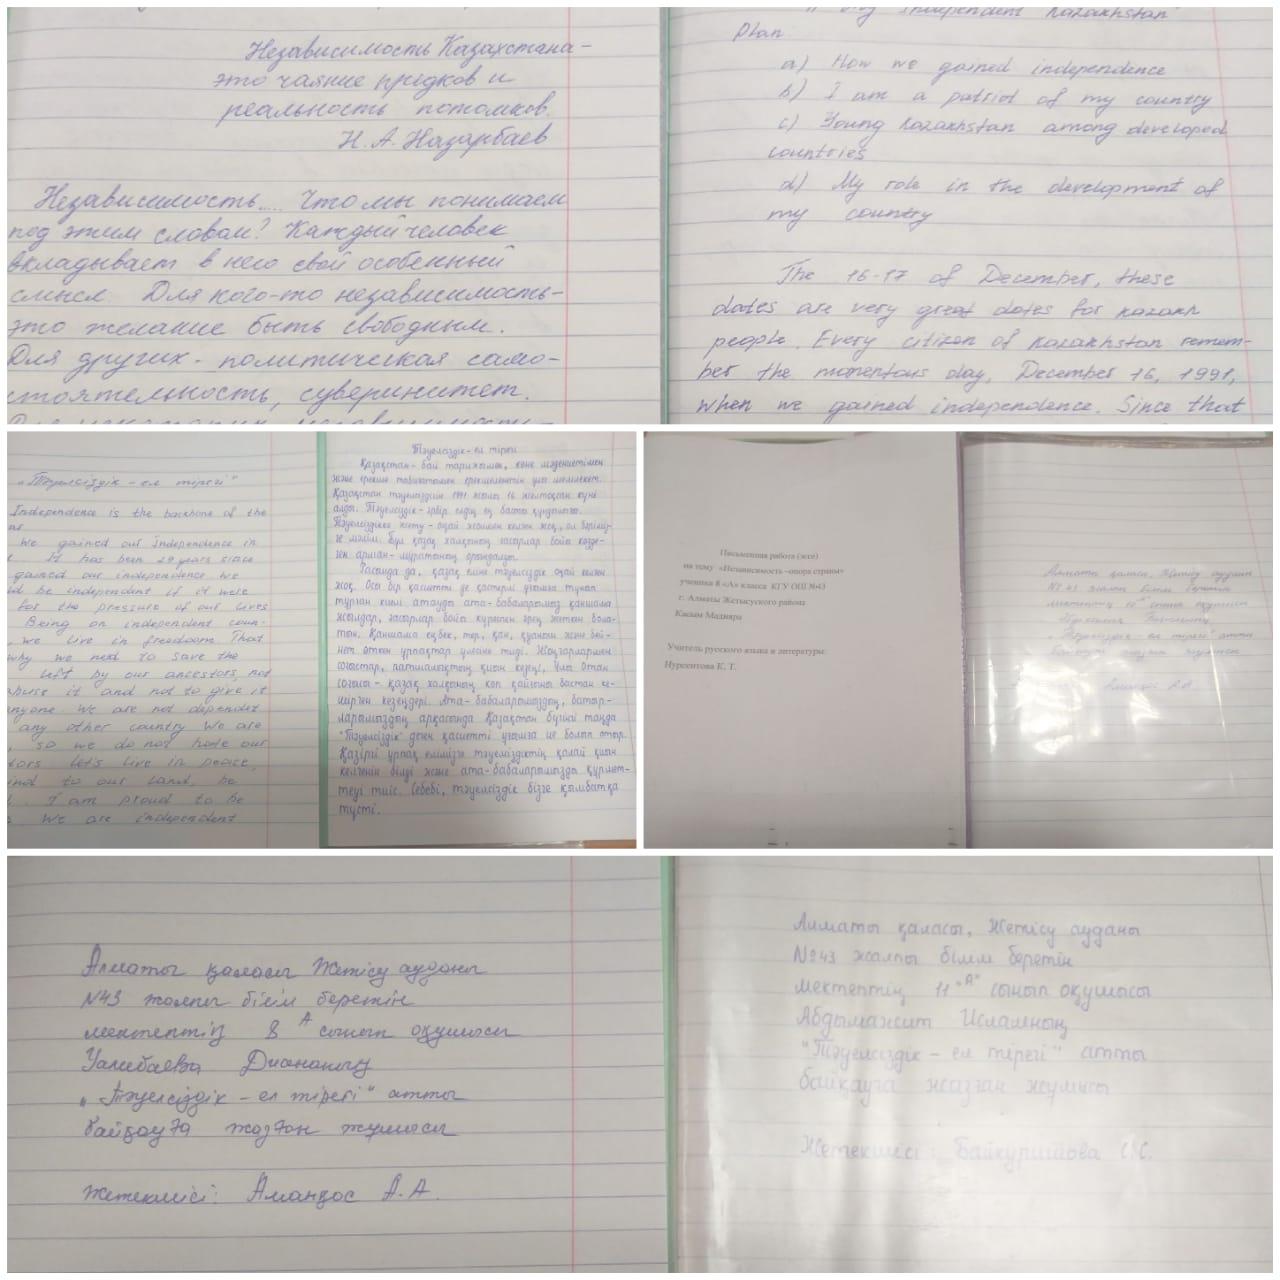 Независимость Казахстана -
это чаяние предков и
реальность потомков.
Н. А. Назарбаев
Независимость.... Что мы понимаем
под этим словом? Каждый человек
вкладывает в него свой особенный
смысл. Для кого-то независимость-
это желание быть свободным.
Для других - политическая само-
стоятельность, суверинитет.
My Independent Kazakhstan"
Plan
a) How we gained independence
b) I am a patriot of my country
c) Young Kazakhstan among developed
countries
d) My role in the development of
my country
The 16-17 of December, these
dates are very great dates for kazakh
people. Every citizen of Kazakhstan remem-
ber the momentous day, December 16, 1991,
when we gained independence. Since that
"Тәуелсіздік - ел тірегі"
Independence is the backbone of the
We gained our Independence in
It has been 29 years since
gained our independence we
be independent if it were
for the pressure of our lives
Being an independent coun-
we live in freedoom. That
why we need to save the
left by our ancestors, not
abuse it and not to give it
anyone. We are not dependet
any other country We are
so we do not hate our
Let's live in peace,
kind to our land, be
I am proud to be
We are independent
Тәуелсіздік - ел тірегі
Қазақстан - бай тарихымен, көне мәдениетімен
және ерекше табиғатымен ерекшеленетін ұлы мемлекет.
Қазақстан тәуелсіздігін 1991 жылы 16 желтоқсан күні
алды. Тәуелсіздік - әрбір елдің ең басты құндылығы.
Тәуелсіздікке жету - оңай жолмен келген жоқ, ол бәріміз-
ге мәлім. Бұл қазақ халқының ғасырлар бойы көзде-
ген арман - мұратының орындалуы.
Расында да, қазақ еліне тәуелсіздік оңай келген
жоқ. Осы бір қасиетті де қастерлі ұғымға тұнып
тұрған киелі атауды ата-бабаларымыз қаншама
жылдар, ғасырлар бойы күресіп әрең жеткен бола-
тын. Қаншама еңбек, тер, қан, қуаныш және бей-
нет өткен ұрпақтар үлесіне тиді. Жоңғарлармен
соғыстар, патшалықтың қиын кезеңі, Ұлы Отан
соғысы - қазақ халқының көп қайғыны бастан ке-
шірген кезеңдері. Ата-бабаларымыздың, батыр-
ларымыздың арқасында Қазақстан бүгінгі таңда
"Тәуелсіздік" деген қасиетті ұғымға ие болып отыр.
Қазіргі ұрпақ елімізге тәуелсіздіктің қалай қиын
келгенін білуі және ата-бабаларымызды құрмет-
теуі тиіс. Себебі, тәуелсіздік бізге қымбатқа
түсті.
Письменная работа (эссе)
на тему «Независимость –опора страны»
ученика 8 «А» класса КГУ ОШ №43
г. Алматы Жетысуского района
Касым Мадияра
Учитель русского языка и литературы:
Нурсеитова К. Т.
Алматы қаласы, Жетісу ауданы
№ 43 жалпы білім беретін
мектептің 11 "А" сынып оқушысы
"Тәуелсіздік - ел тірегі" атты
байқауға жазған жұмысы
Аманқос А.А.
Алматы қаласы Жетісу ауданы
№43 жалпы білім беретін
мектептің 8 А сынып оқушысы
Уалибаева Диананың
"Тәуелсіздік - ел тірегі" атты
байқауға жазған жұмысы
Жетекшісі: Аманқос А.А.
Алматы қаласы, Жетісу ауданы
№43 жалпы білім беретін
мектептің 11 "А" сынып оқушысы
Абдымажит Исламның
"Тәуелсіздік - ел тірегі" атты
байқауға жазған жұмысы
Жетекшісі: Байкуришова С.